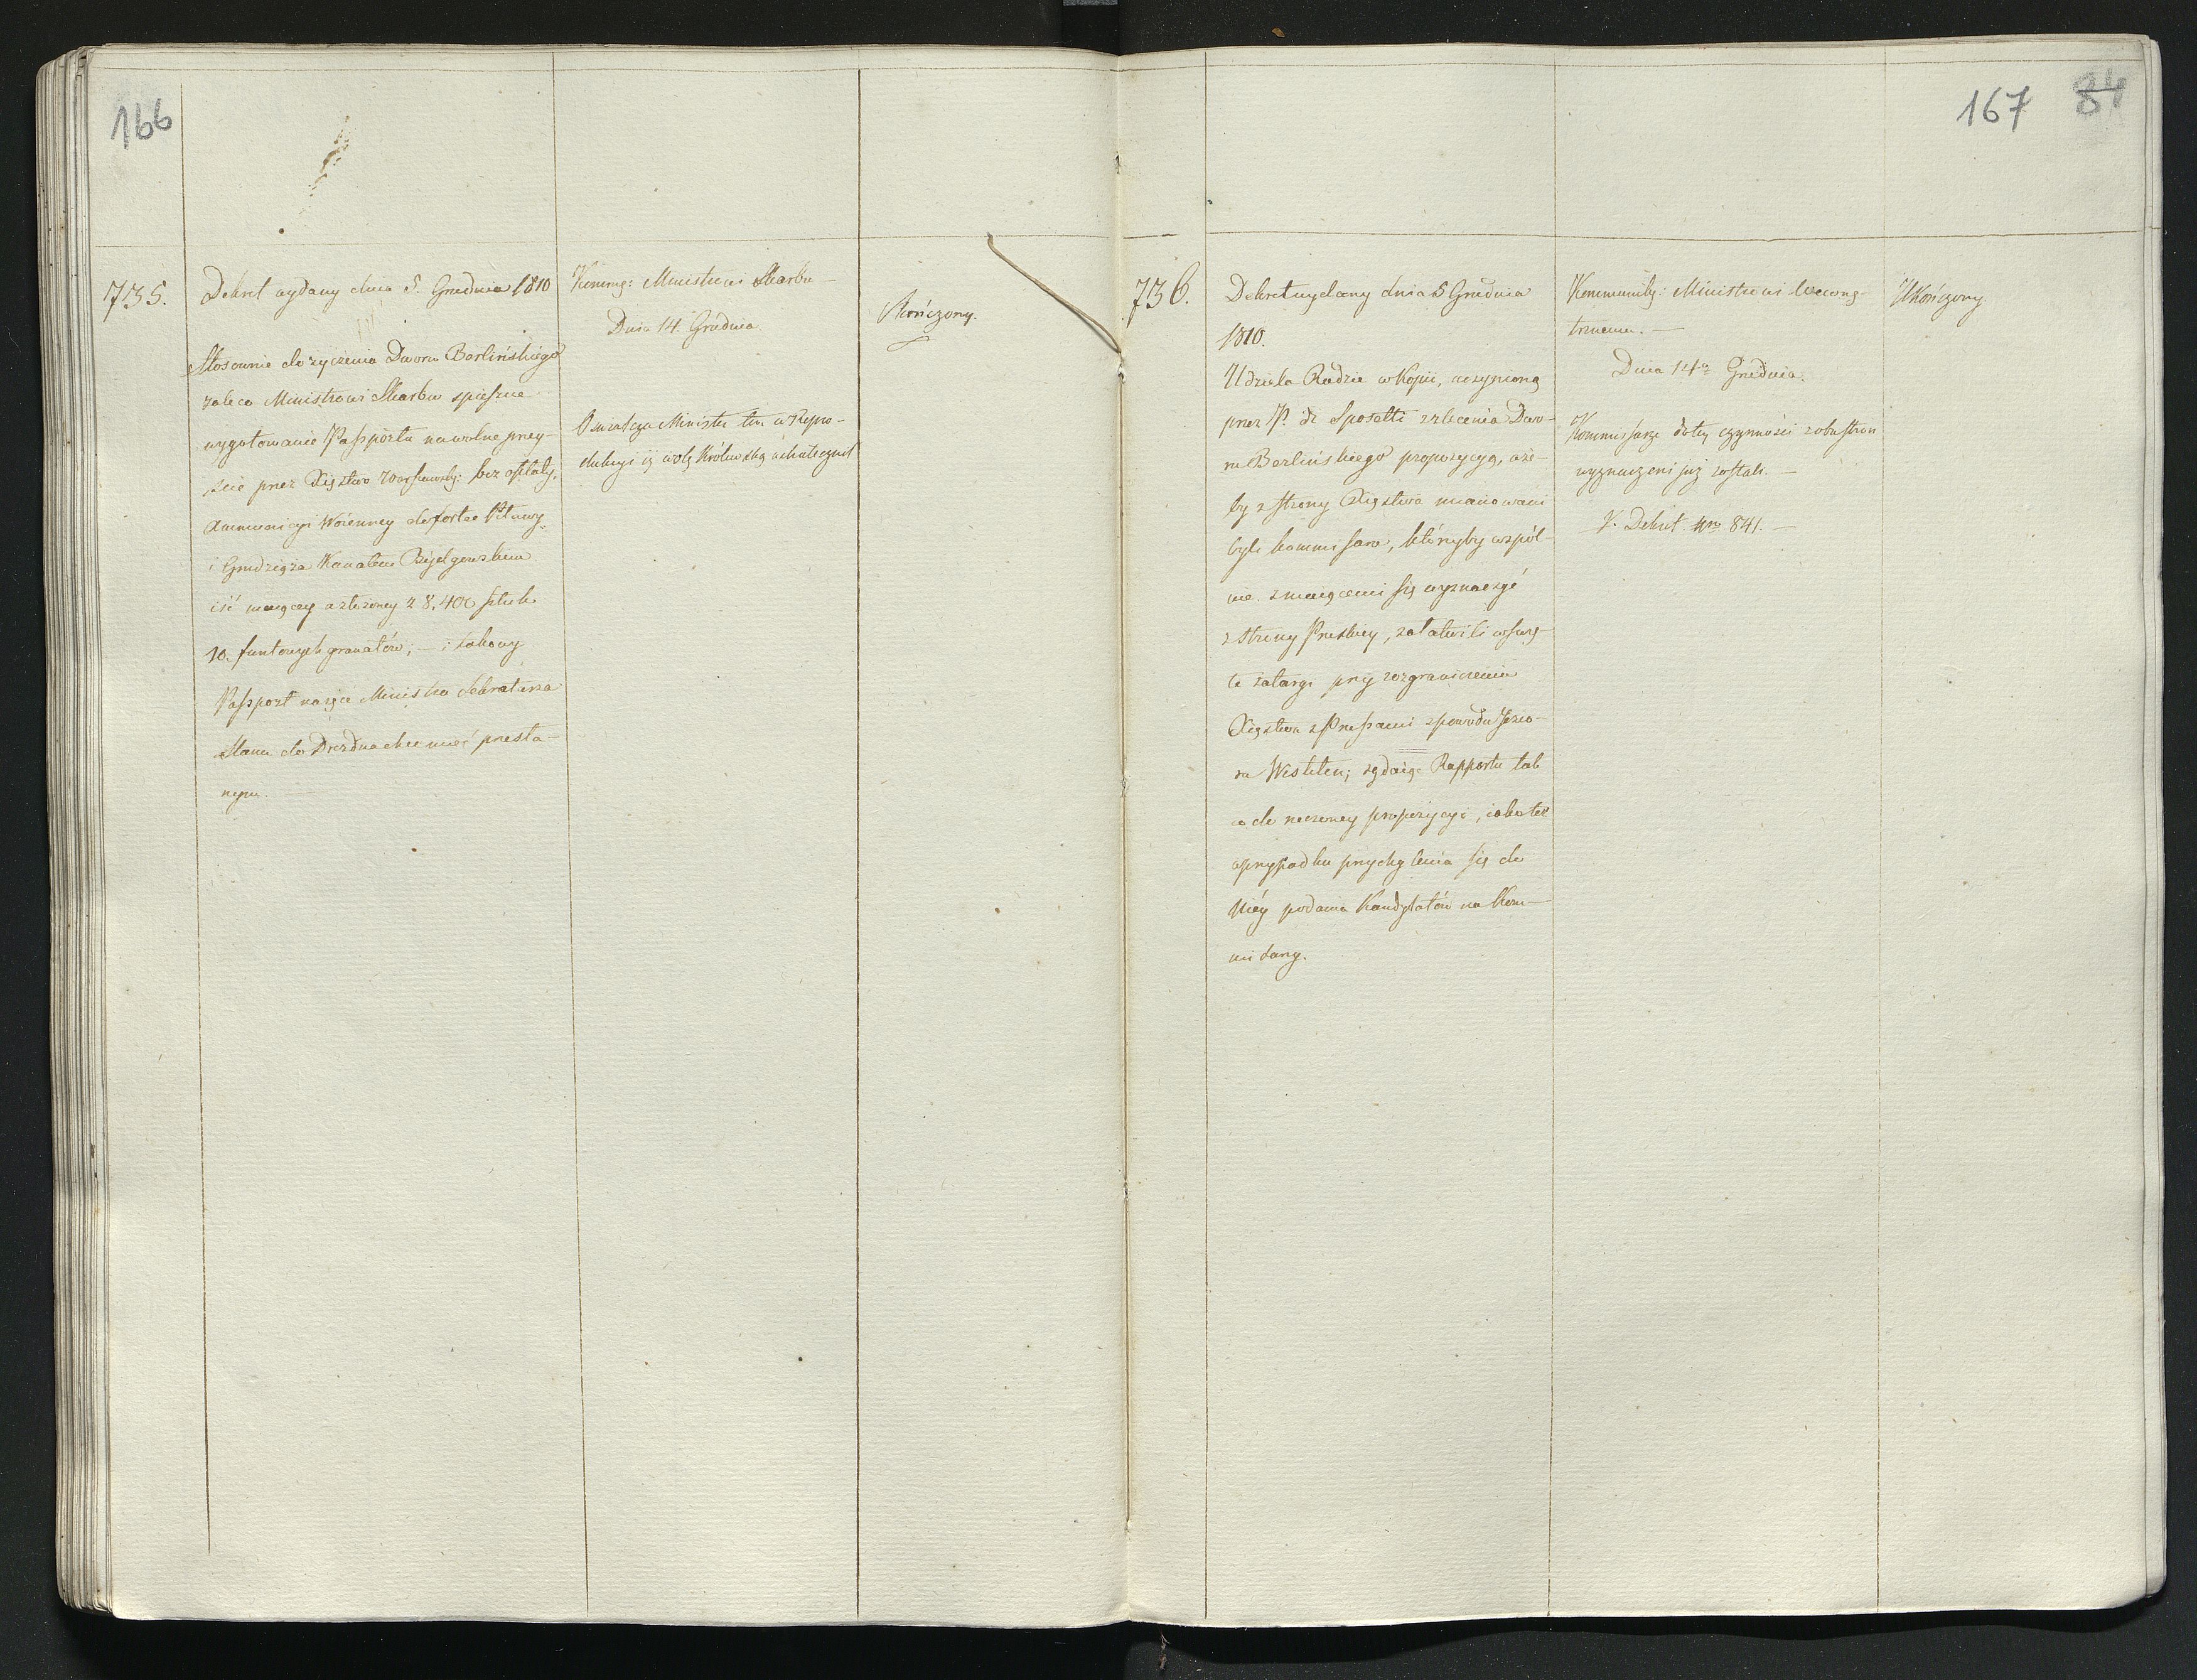 166
735.
Dekret wydany dnia 5. Grudnia 1810
Stosownie do życzenia Dworu Berlińskiego
zaleca Ministrowi Skarbu spieszne
wygotowanie Passportu na wolne prey-
ście przez Xięztwo Warszawsk: bez opłaty,
Ammunicyi Woienney do fortec Pilawy
i Grudziąża Kanałem Bydgowskim
iść maiącey a złożoney z 8,400 sztuk
10. funtowych granatów; — i takowy
Passport na ręce Ministra Sekretarza
Stanu do Drezdna chce mieć przesła-
nym.
Kommg: Ministrowi Skarbu —
Dnia 14. Grudnia.
Oswiadcza Minister ten w Repro-
dukcyi iż wolę Królewską uskutecznił
Skończony.
167 84
736.
Dekret wydany dnia 5 Grudnia
1810.
Udziela Radzie w Kopii, uczynioną
przez P. de Sposetti z zlecenia Dwo-
ru Berlińskiego propozycyą, aże-
by z strony Xięstwa mianowani
byli kommissarze, którzyby wspól-
nie z maiącemi się wyznaczyć
z strony Pruskiey, załatwili wszys-
te zatargi przy rozgraniczeniu
Xięstwa z Prussami z powodu Jezio-
ra Weshten; żądaiąc Rapportu tak
co do rzeczoney propozycyi, iako też
w przypadku przychylenia się do
Niéy podania Kandydatów na Kom-
missarzy.
Kommunik: Ministrowi Wewnę-
trznemu. —
Dnia 14ⁿ Grudnia.
Kommissarze do tey czynności z obu stron
wyznaczeni już zostali. —
V. Dekret Nro 841. —
Ukończony.